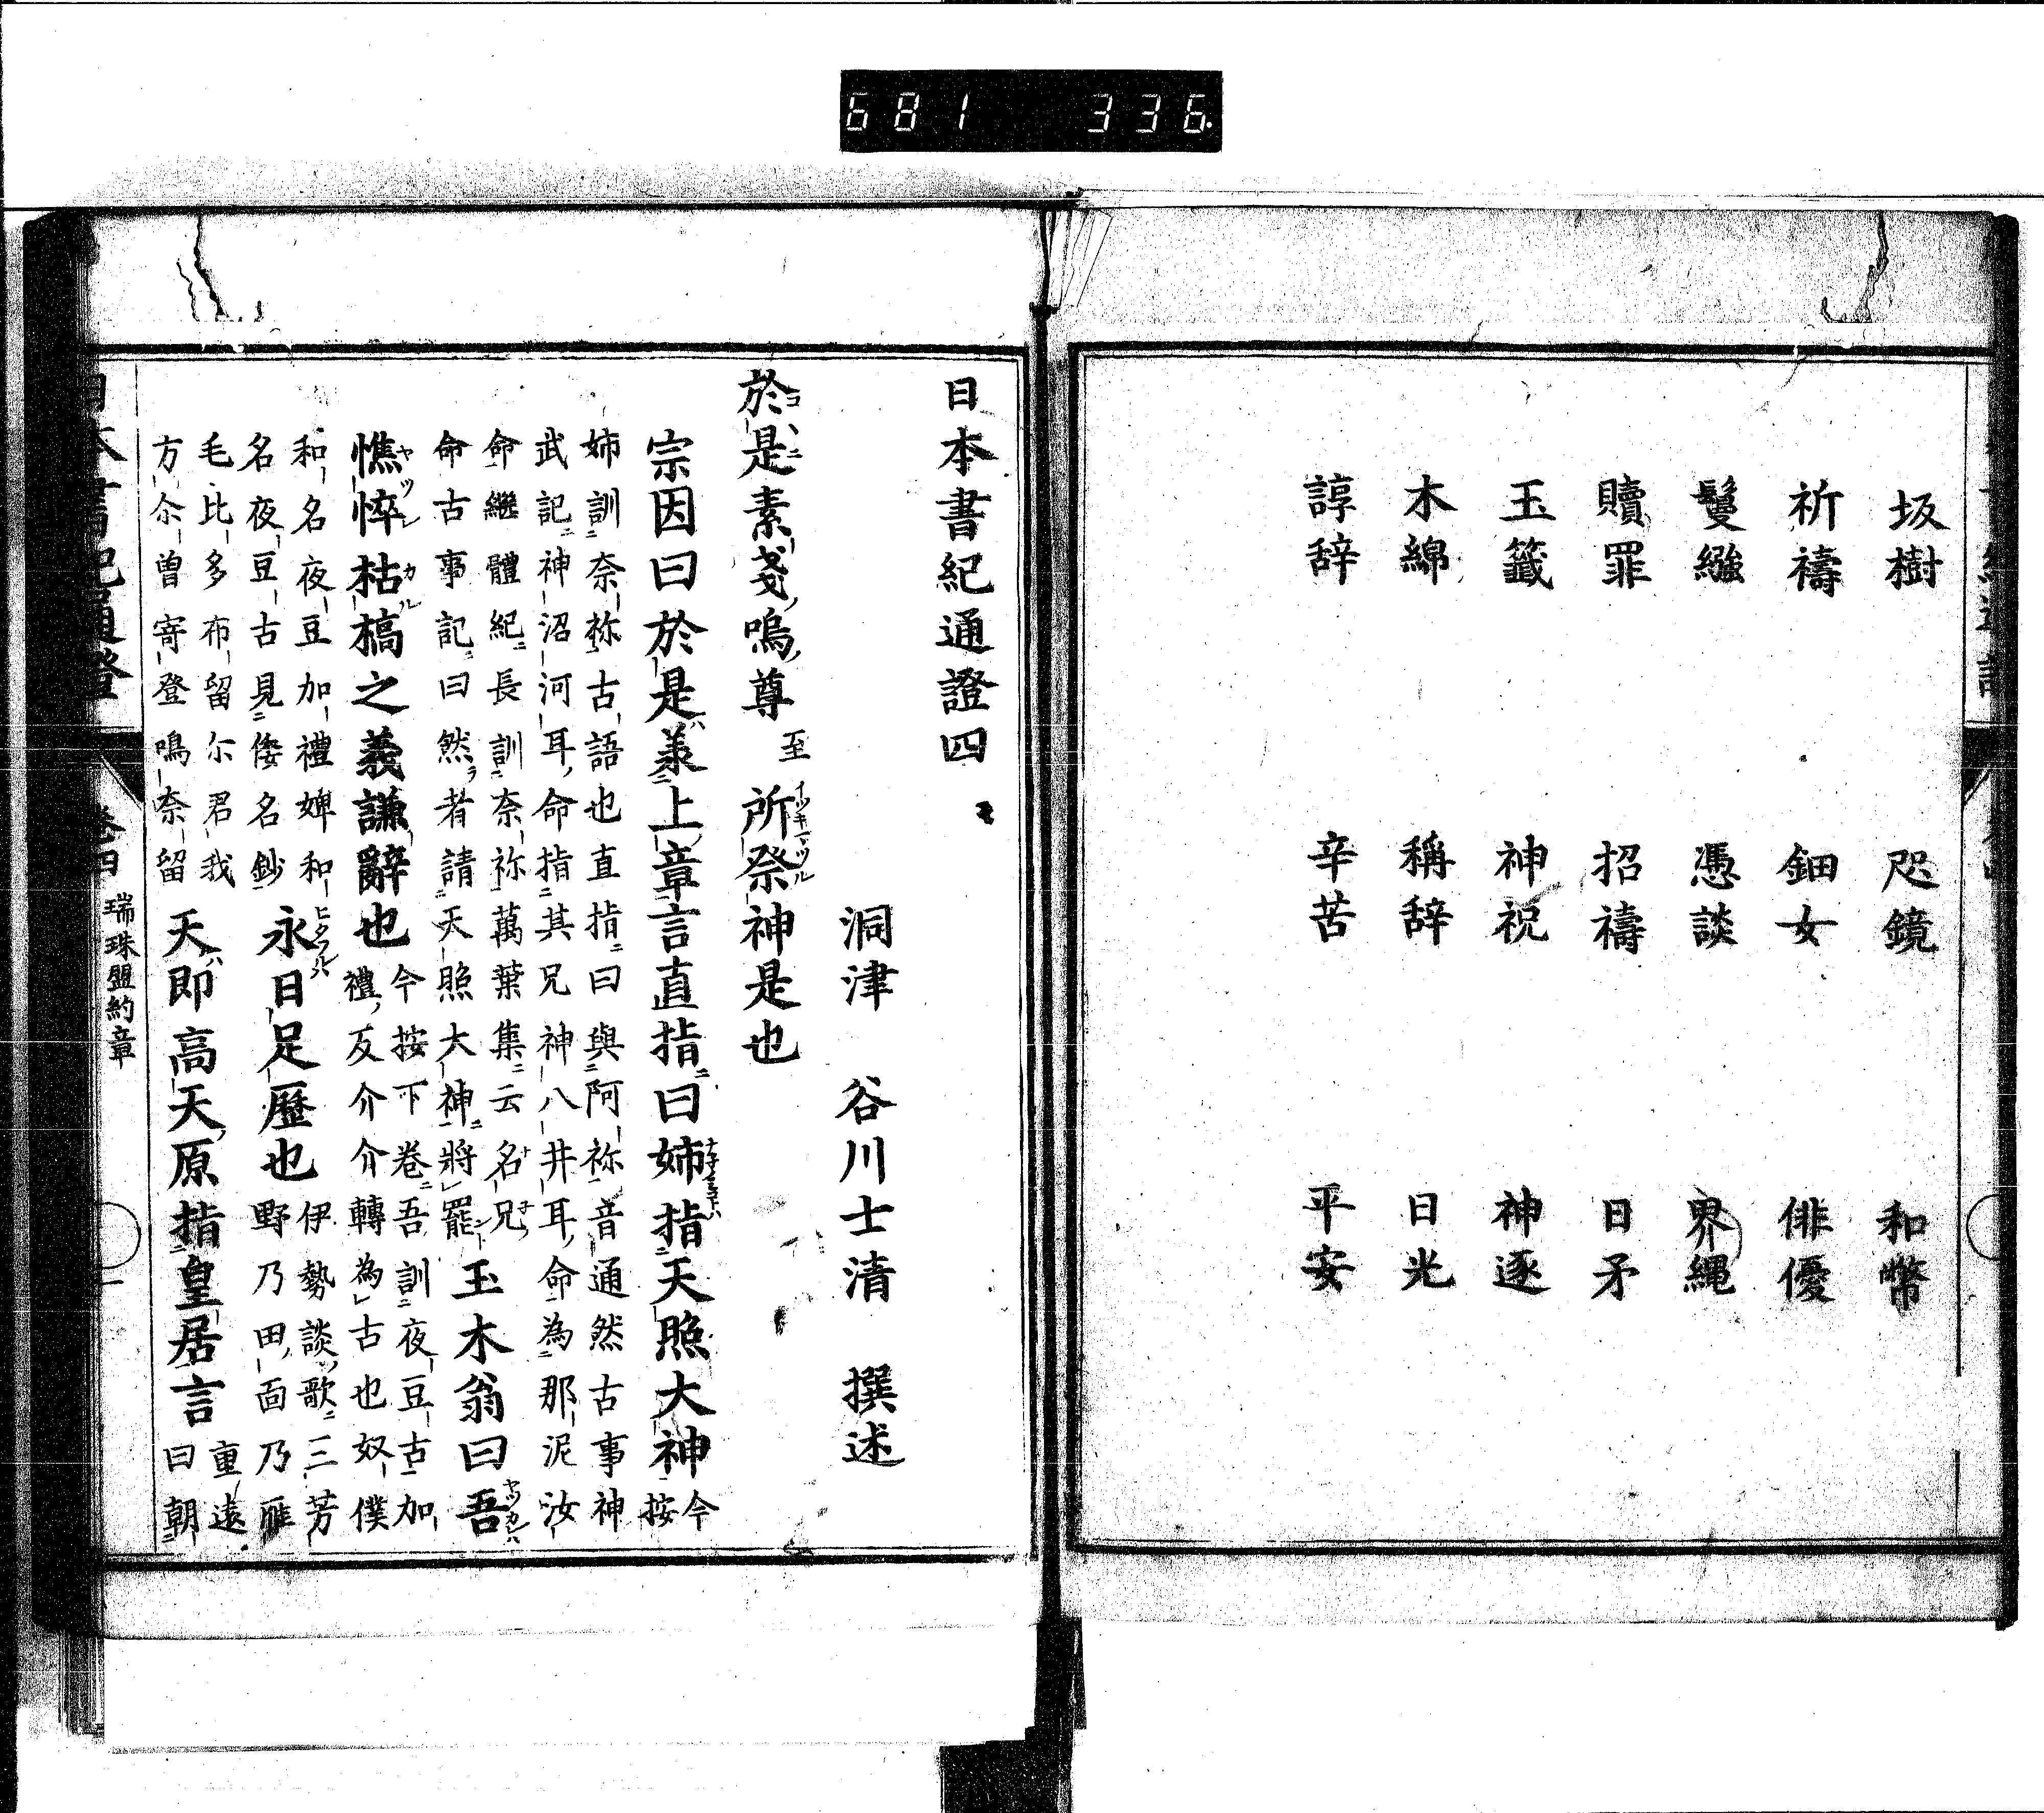 681 336
坂樹 咫鏡 和幣
祈禱 鈿女 俳優
鬘繦 憑談 界縄
贖罪 招禱 日矛
玉籤 神祝 神逐
木綿 稱辞 日光
諄辞 辛苦 平安
日本書紀通證四
洞津 谷川士清 撰述
於是素戔嗚尊至所祭神是也
宗因曰於是承上章言直指曰姉指天照大神今
按
姉訓奈祢古語也直指曰與阿祢音通然古事神
武記神沼河耳命指其兄神八井耳命為那泥汝
命繼體紀長訓奈祢萬葉集云名兄
命古事記曰然者請天照大神將罷玉木翁曰吾
憔悴枯槁之義謙辭也今按下卷吾訓夜豆古加
禮反介介轉為古也奴僕
和名夜豆加禮婢和
名夜豆古見倭名鈔永日足歷也伊勢談歌三芳
野乃田面乃雁
毛比多布留尓君我
方尓曽寄登鳴奈留天即高天原指皇居言重遠
曰朝
卷四 瑞珠盟約章 一